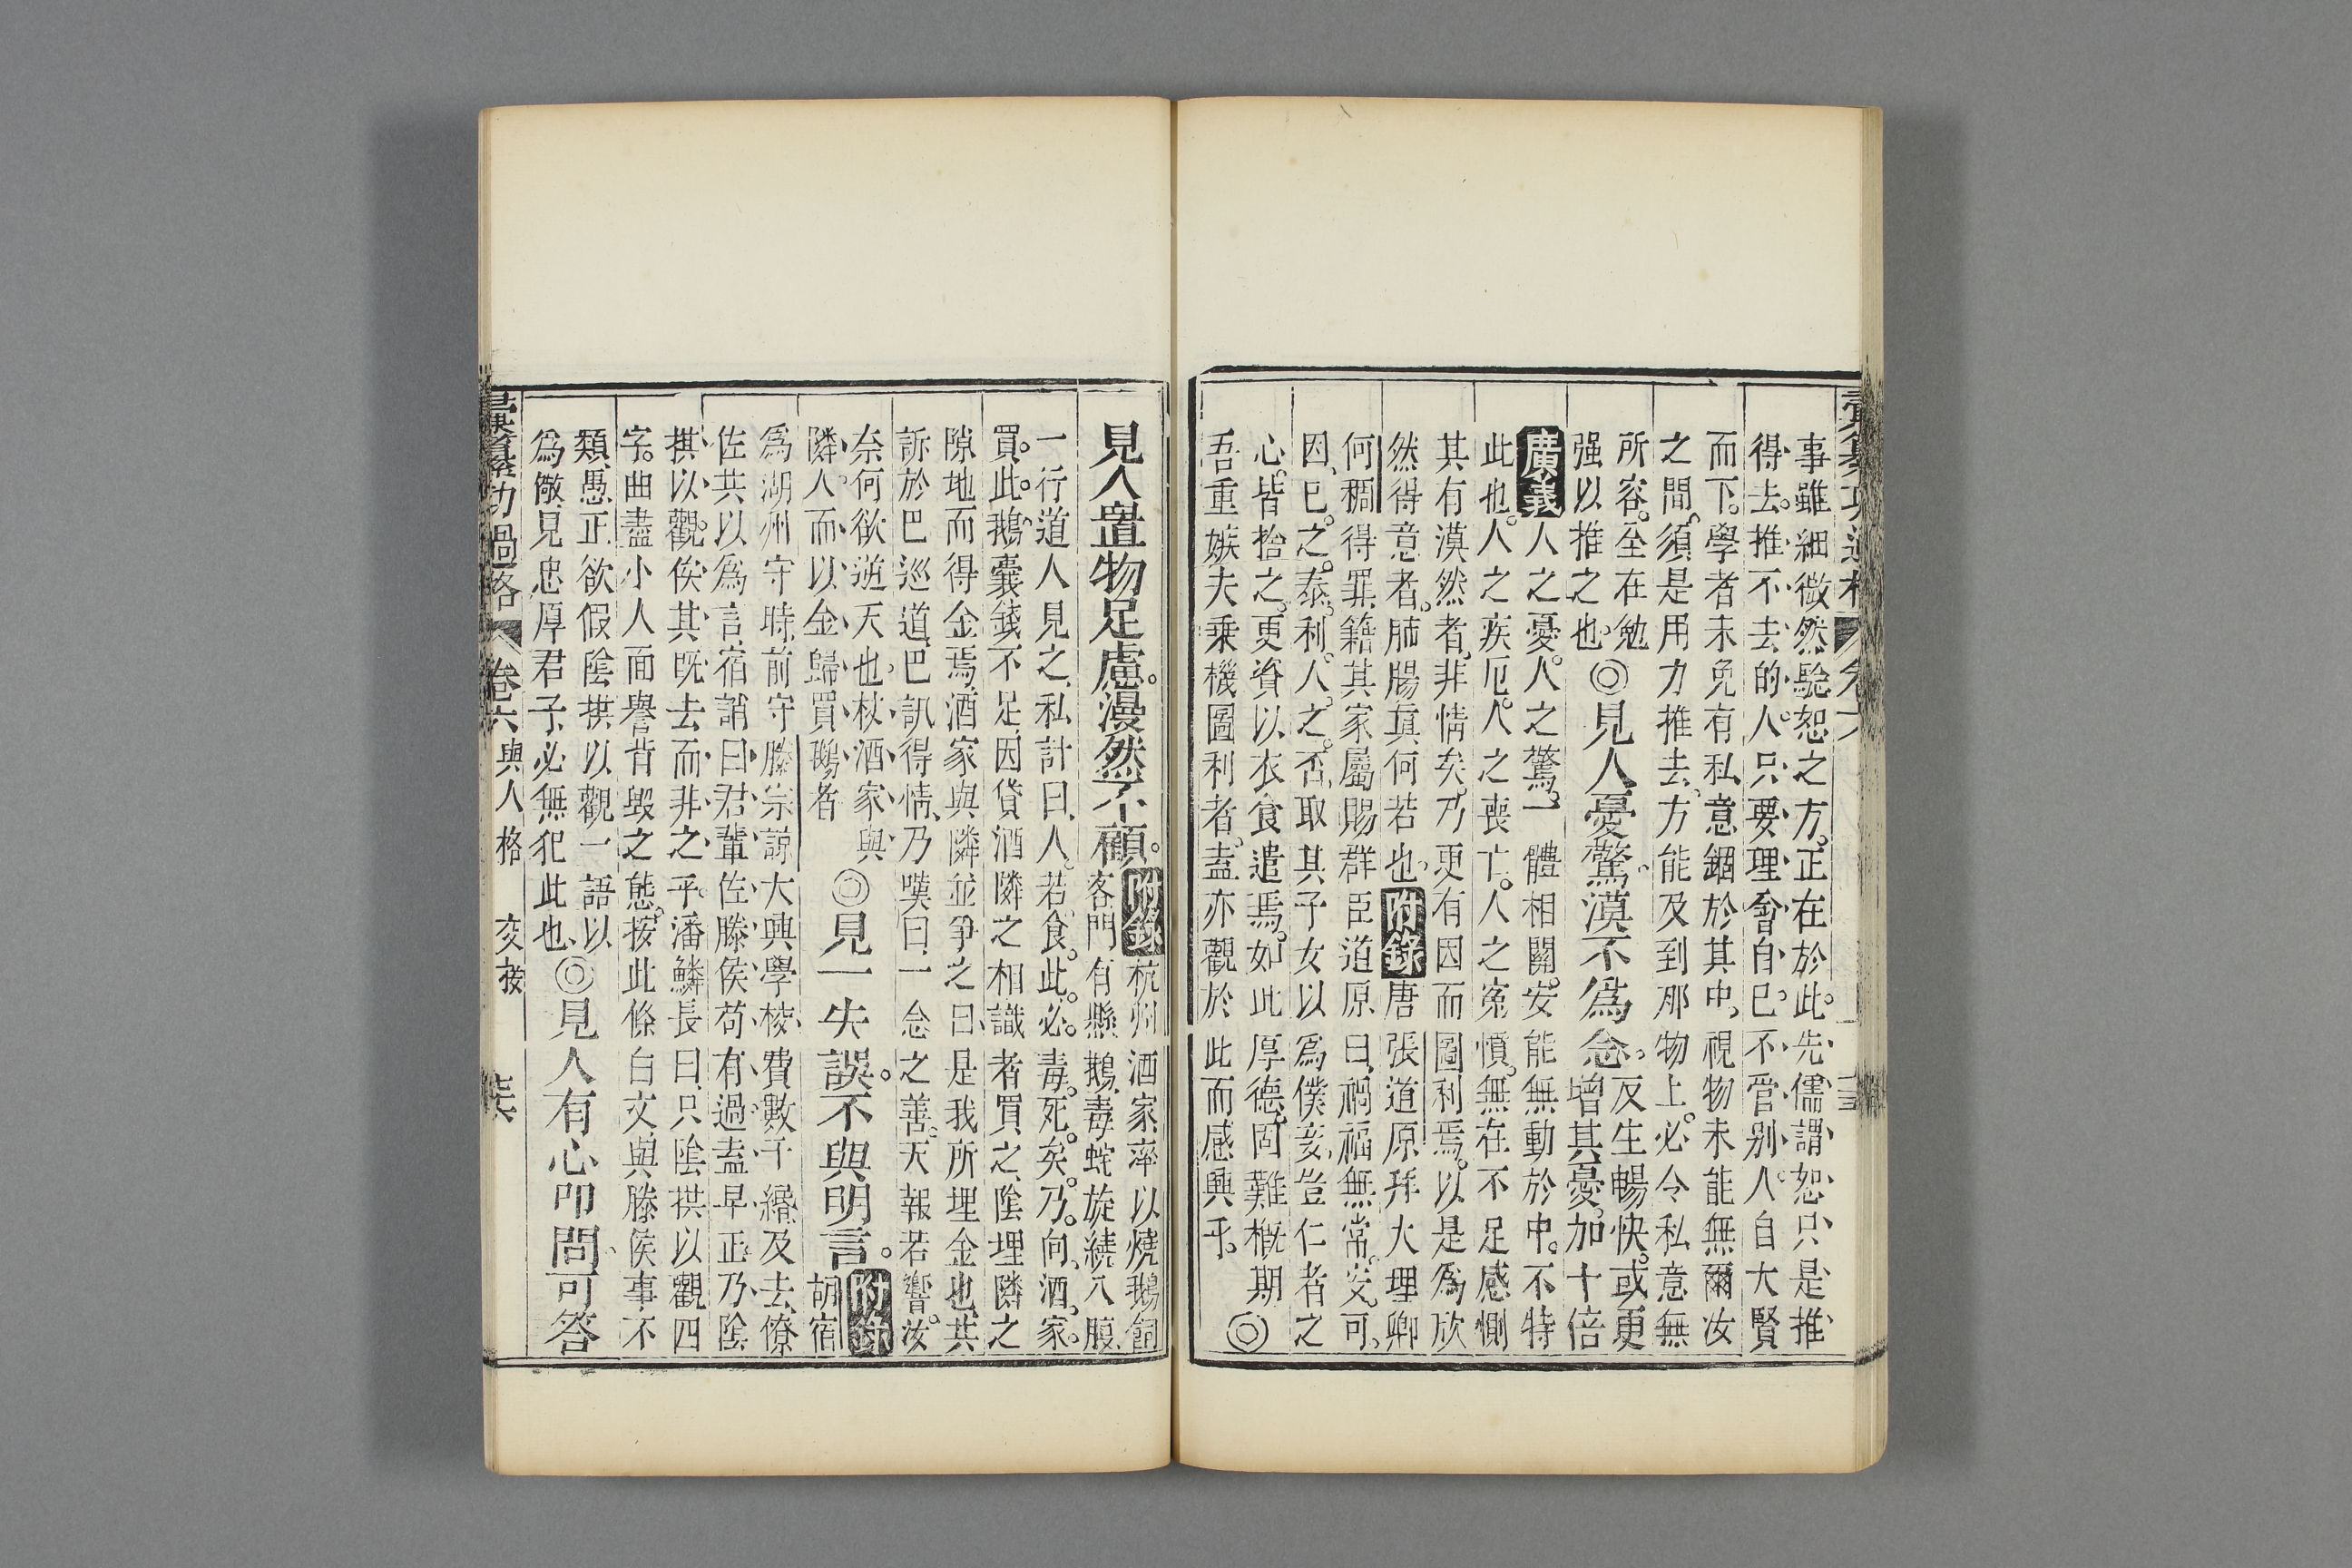 事雖細微然驗恕之方正在於此先儒謂恕只是推
得去推不去的人只要理會自已不管別人自大賢
而下學者未免有私意錮於其中視物未能無爾汝
之間須是用力推去方能及到那物上必令私意無
所容至在勉
强以推之也
◎見人憂驚漠不爲念
反生暢快或更
增其憂加十倍
廣義人之憂人之驚一體相關安能無動於中不特
此也人之疾厄人之喪亡人之寃憤無在不足感惻
其有漠然者非情矣乃更有因而圖利焉以是爲欣
然得意者肺腸眞何若也附錄唐張道原拜大理卿
何稠得罪籍其家屬賜群臣道原曰禍福無常安可
因已之泰利人之否取其子女以爲僕妾豈仁者之
心皆捨之更資以衣食遣焉如此厚德固難槪期
吾重嫉夫乗機圖利者盍亦觀於此而感興乎
◎
見人置物足慮漫然不顧
附錄杭州酒家率以燒鵝飼
客門有懸鵝毒蛇旋繞入腹
一行道人見之私計曰人若食此必毒死矣乃向酒家
買此鵝囊錢不足因貸酒隣之相識者買之陰埋隣之
隙地而得金焉酒家與隣並爭之曰是我所埋金也共
訴於巴巡道巴訊得情乃嘆曰一念之善天報若響汝
奈何欲逆天也杖酒家與
隣人而以金歸買鵝者
◎見一失誤不與明言
附錄
胡宿
爲湖州守時前守滕宗諒大興學校費數千緡及去僚
佐共以爲言宿誚曰君輩佐滕侯苟有過盍早正乃陰
拱以觀俟其旣去而非之乎潘鱗長曰只陰拱以觀四
字曲盡小人面譽背毀之態按此條白文與滕侯事不
類愚正欲假陰拱以觀一語以
爲儆見忠厚君子必無犯此也
◎見人有心叩問可答
彙纂功過格 卷六 與人格 交接